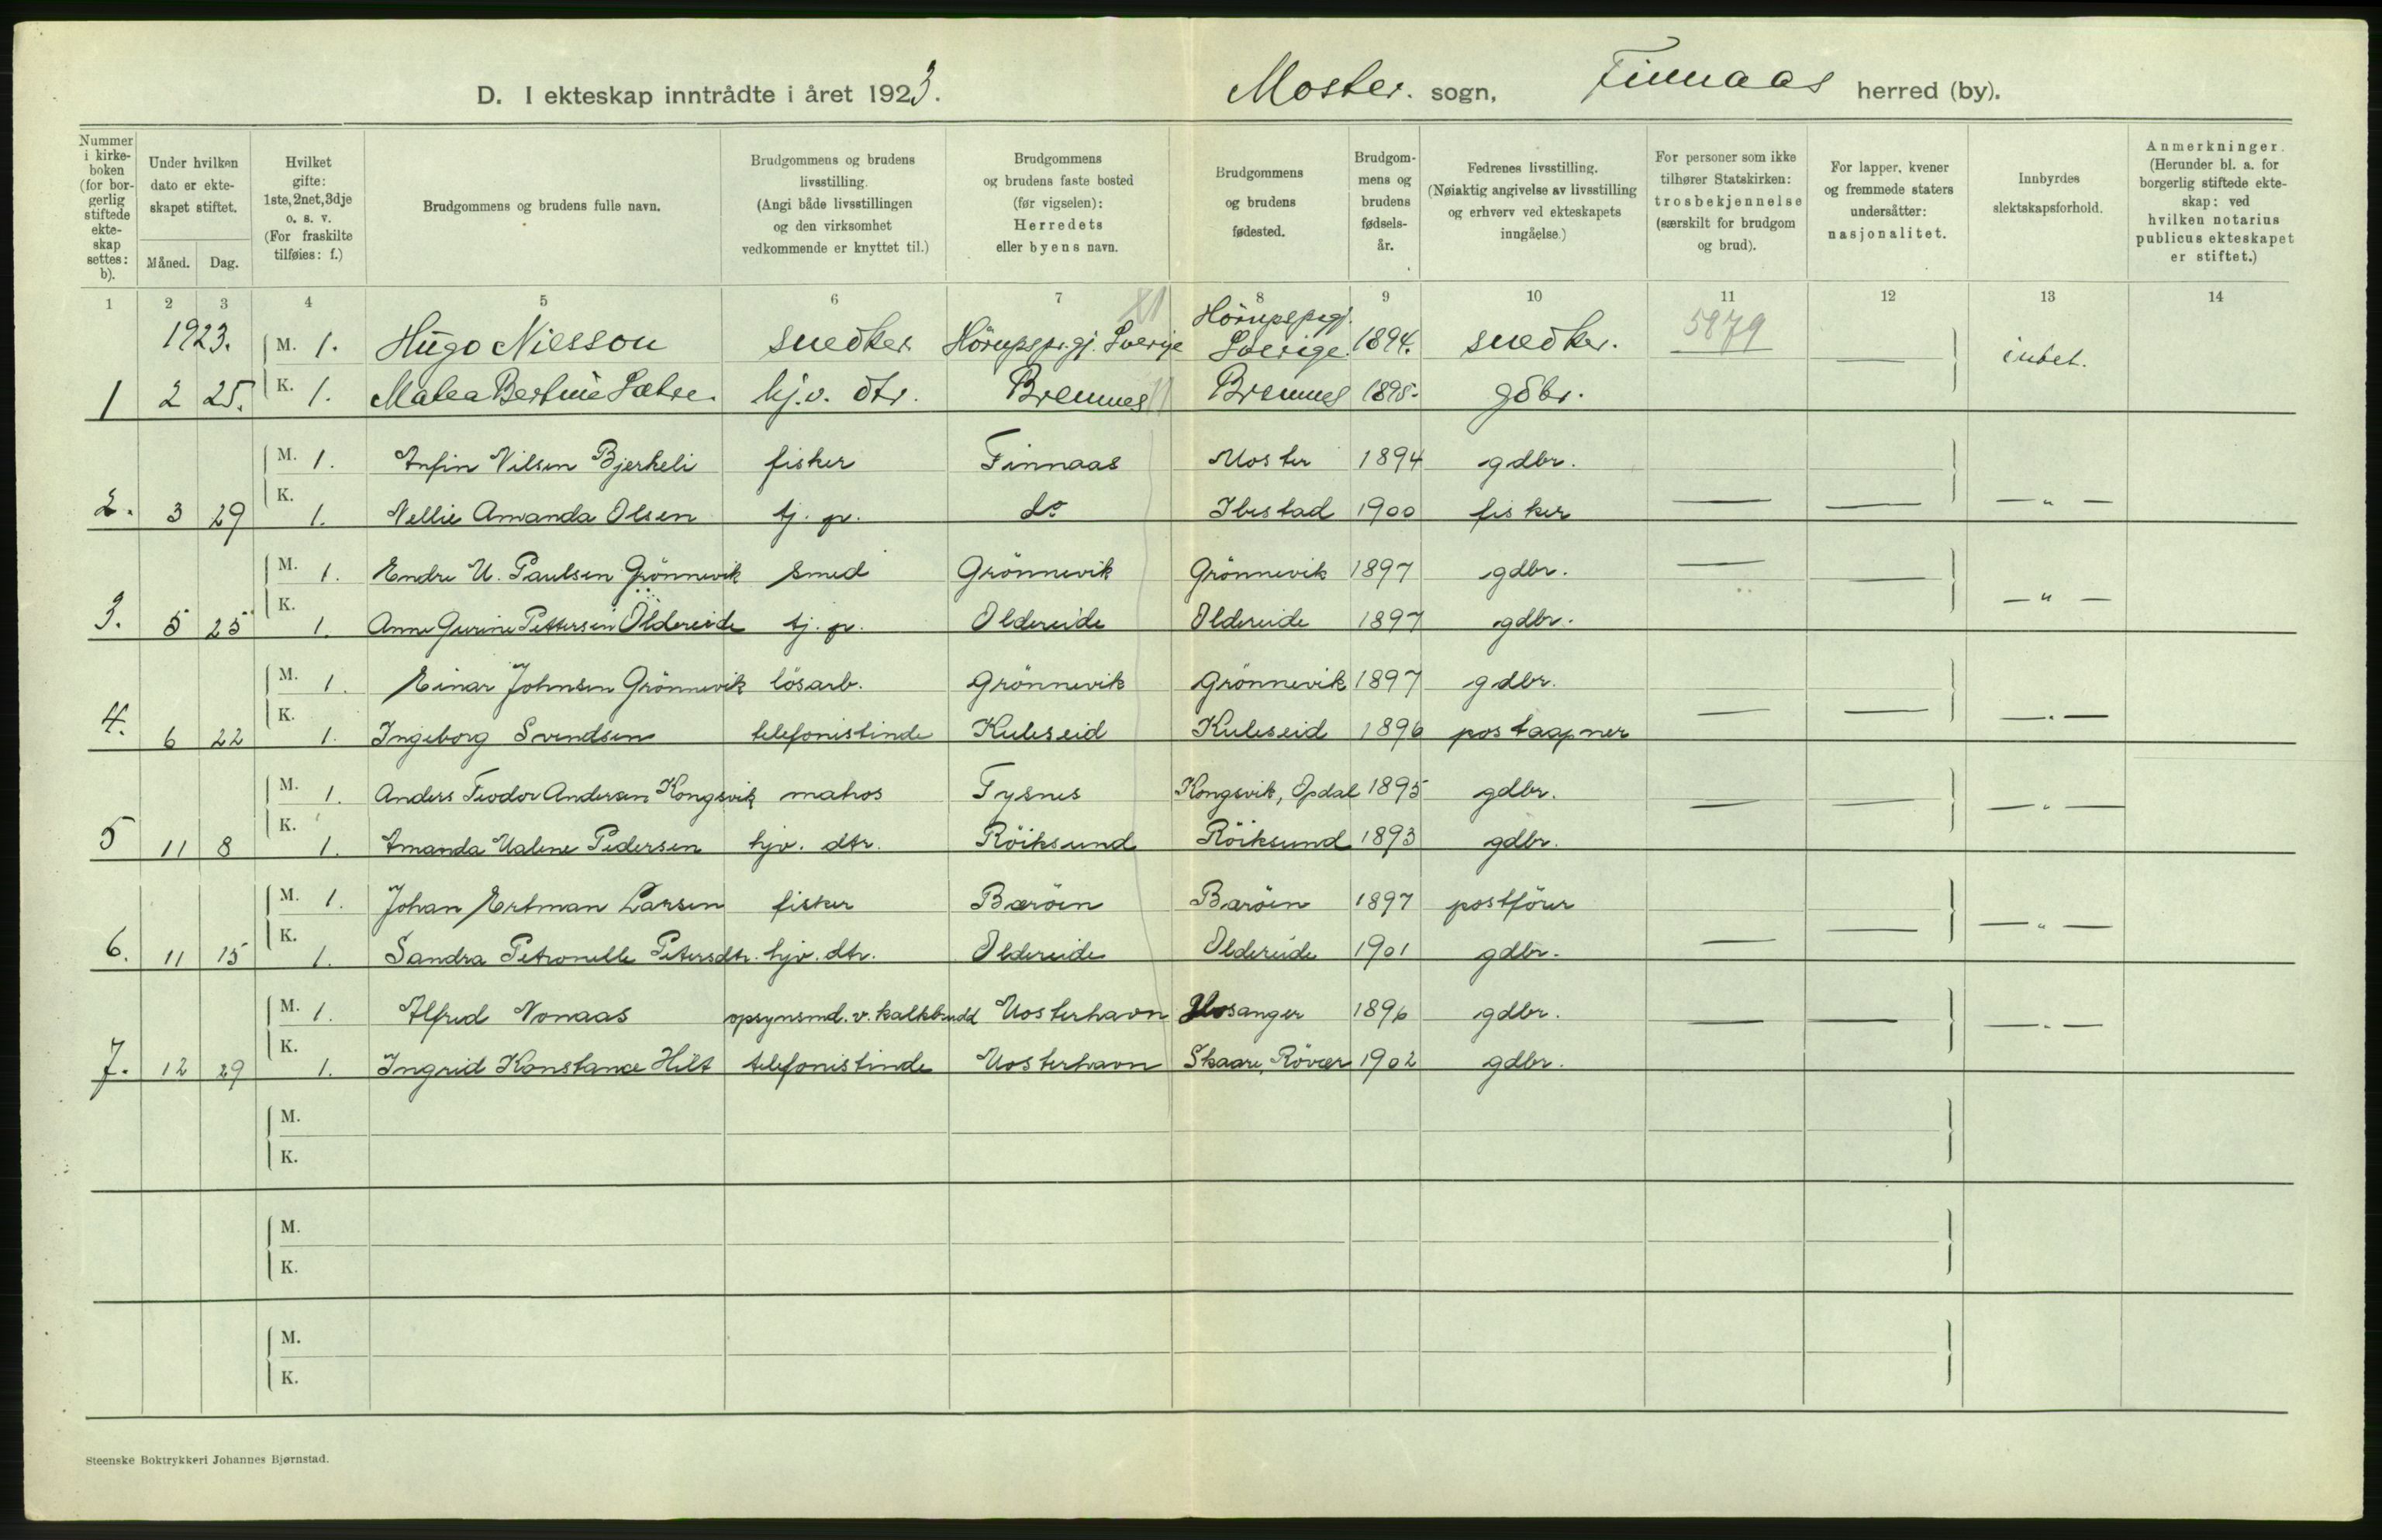 D. I ekteskap inntrådte i året 1923. Moster. sogn, Finnaas herred (by).
Nummer i kirkeboken (for borgerlig stiftede ekteskap settes: b).
Under hvilken dato er ekteskapet stiftet.
Måned. Dag.
Hvilket gifte: 1ste, 2net, 3dje o. s. v. (For fraskilte tilføies: f.)
Brudgommens og brudens fulle navn.
Brudgommens og brudens livsstilling. (Angi både livsstillingen og den virksomhet vedkommende er knyttet til.)
Brudgommens og brudens faste bosted (før vigselen): Herredets eller byens navn.
Brudgommens og brudens fødested.
Brudgommens og brudens fødselsår.
Fedrenes livsstilling. (Nøiaktig angivelse av livsstilling og erhverv ved ekteskapets inngåelse.)
For personer som ikke tilhører Statskirken: trosbekjennelse (særskilt for brudgom og brud).
For lapper, kvener og fremmede staters undersåtter: nasjonalitet.
Innbyrdes slektskapsforhold.
Anmerkninger. (Herunder bl. a. for borgerlig stiftede ekteskap: ved hvilken notarius publicus ekteskapet er stiftet.)
1 2 3 4 5 6 7 8 9 10 11 12 13 14
1923. M. 1. Hugo Nilsson snedker Hörupspr.gj. Sverige Hörupsprgj. Sverige. 1894. snedker. 5879 — intet.
1 2 25. K. 1. Malea Bertine Sætre. hj.v. dtr. Bremnes Bremnes 1898. gdbr.
M. 1. Anfin Nilsen Bjerkeli fisker Finnaas Moster 1894 gdbr.
2. 3 29 K. 1. Nellie Amanda Olsen tj. p. do Ibestad 1900 fisker — — — " —
M. 1. Endre M. Paulsen Grönnevik smed Grönnevik Grönnevik 1897 gdbr. — —
3. 5 25 K. 1. Anne Gurine Pettersen Oldereide tj. p. Oldereide Oldereide 1897 gdbr. — " —
M. 1. Einar Johnsen Grönnevik lösarb. Grönnevik Grönnevik 1897 gdbr.
4. 6 22 K. 1. Ingeborg Svendsen telefonistinde Kuleseid Kuleseid 1896 postaapner — — — " —
M. 1. Anders Teodor Andersen Kongsvik matros Tysnes Kongsvik, Opdal 1895 gdbr.
5 11 8 K. 1. Amanda Malene Pedersen hjv. dtr. Röiksund Röiksund 1893 gdbr. — — — " —
M. 1. Johan Ertman Larsen fisker Baröen Baröen 1897 postförer
6. 11 15 K. 1. Sandra Petronelle Petersdtr. hjv. dtr. Oldereide Oldereide 1901 gdbr. — — — " —
M. 1. Alfred Nonaas opsynsmd. v. kalkbrudd Mosterhavn Hosanger 1896 gdbr.
7. 12 29 K. 1. Ingrid Konstance Hilt telefonistinde Mosterhavn Skaare, Rövær 1902 gdbr. — — — " —
M.
K.
M.
K.
M.
K.
Steenske Boktrykkeri Johannes Bjørnstad.